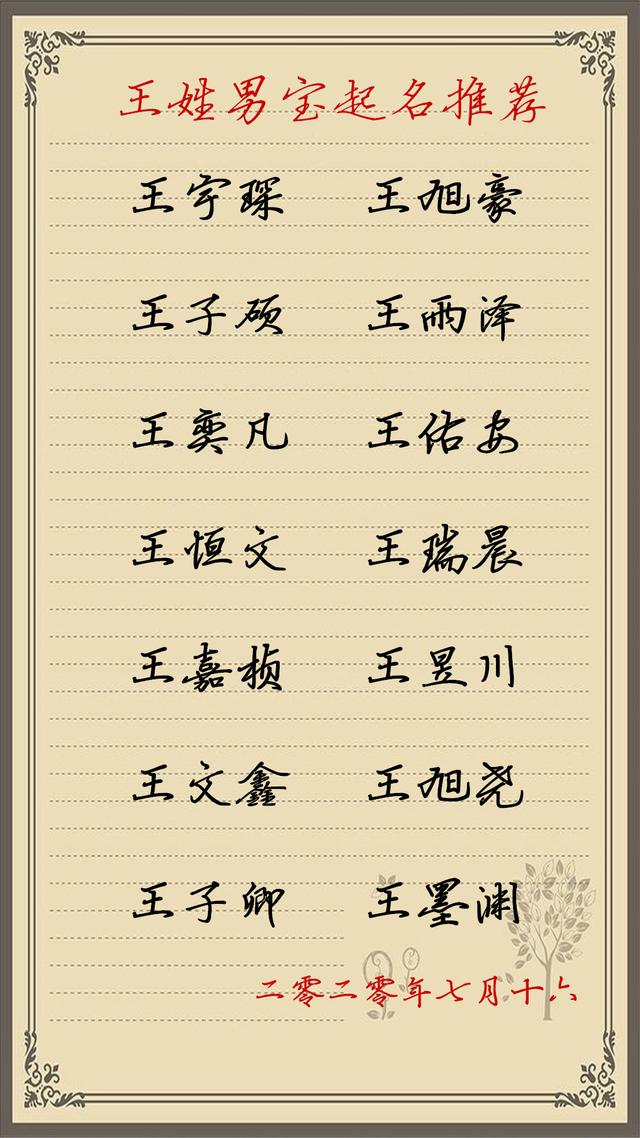 王姓男宝起名推荐
王宇琛 王旭豪
王子硕 王雨泽
王奕凡 王佑安
王恒文 王瑞晨
王嘉桢 王昱川
王文鑫 王旭尧
王子卿 王墨渊
二零二零年七月十六